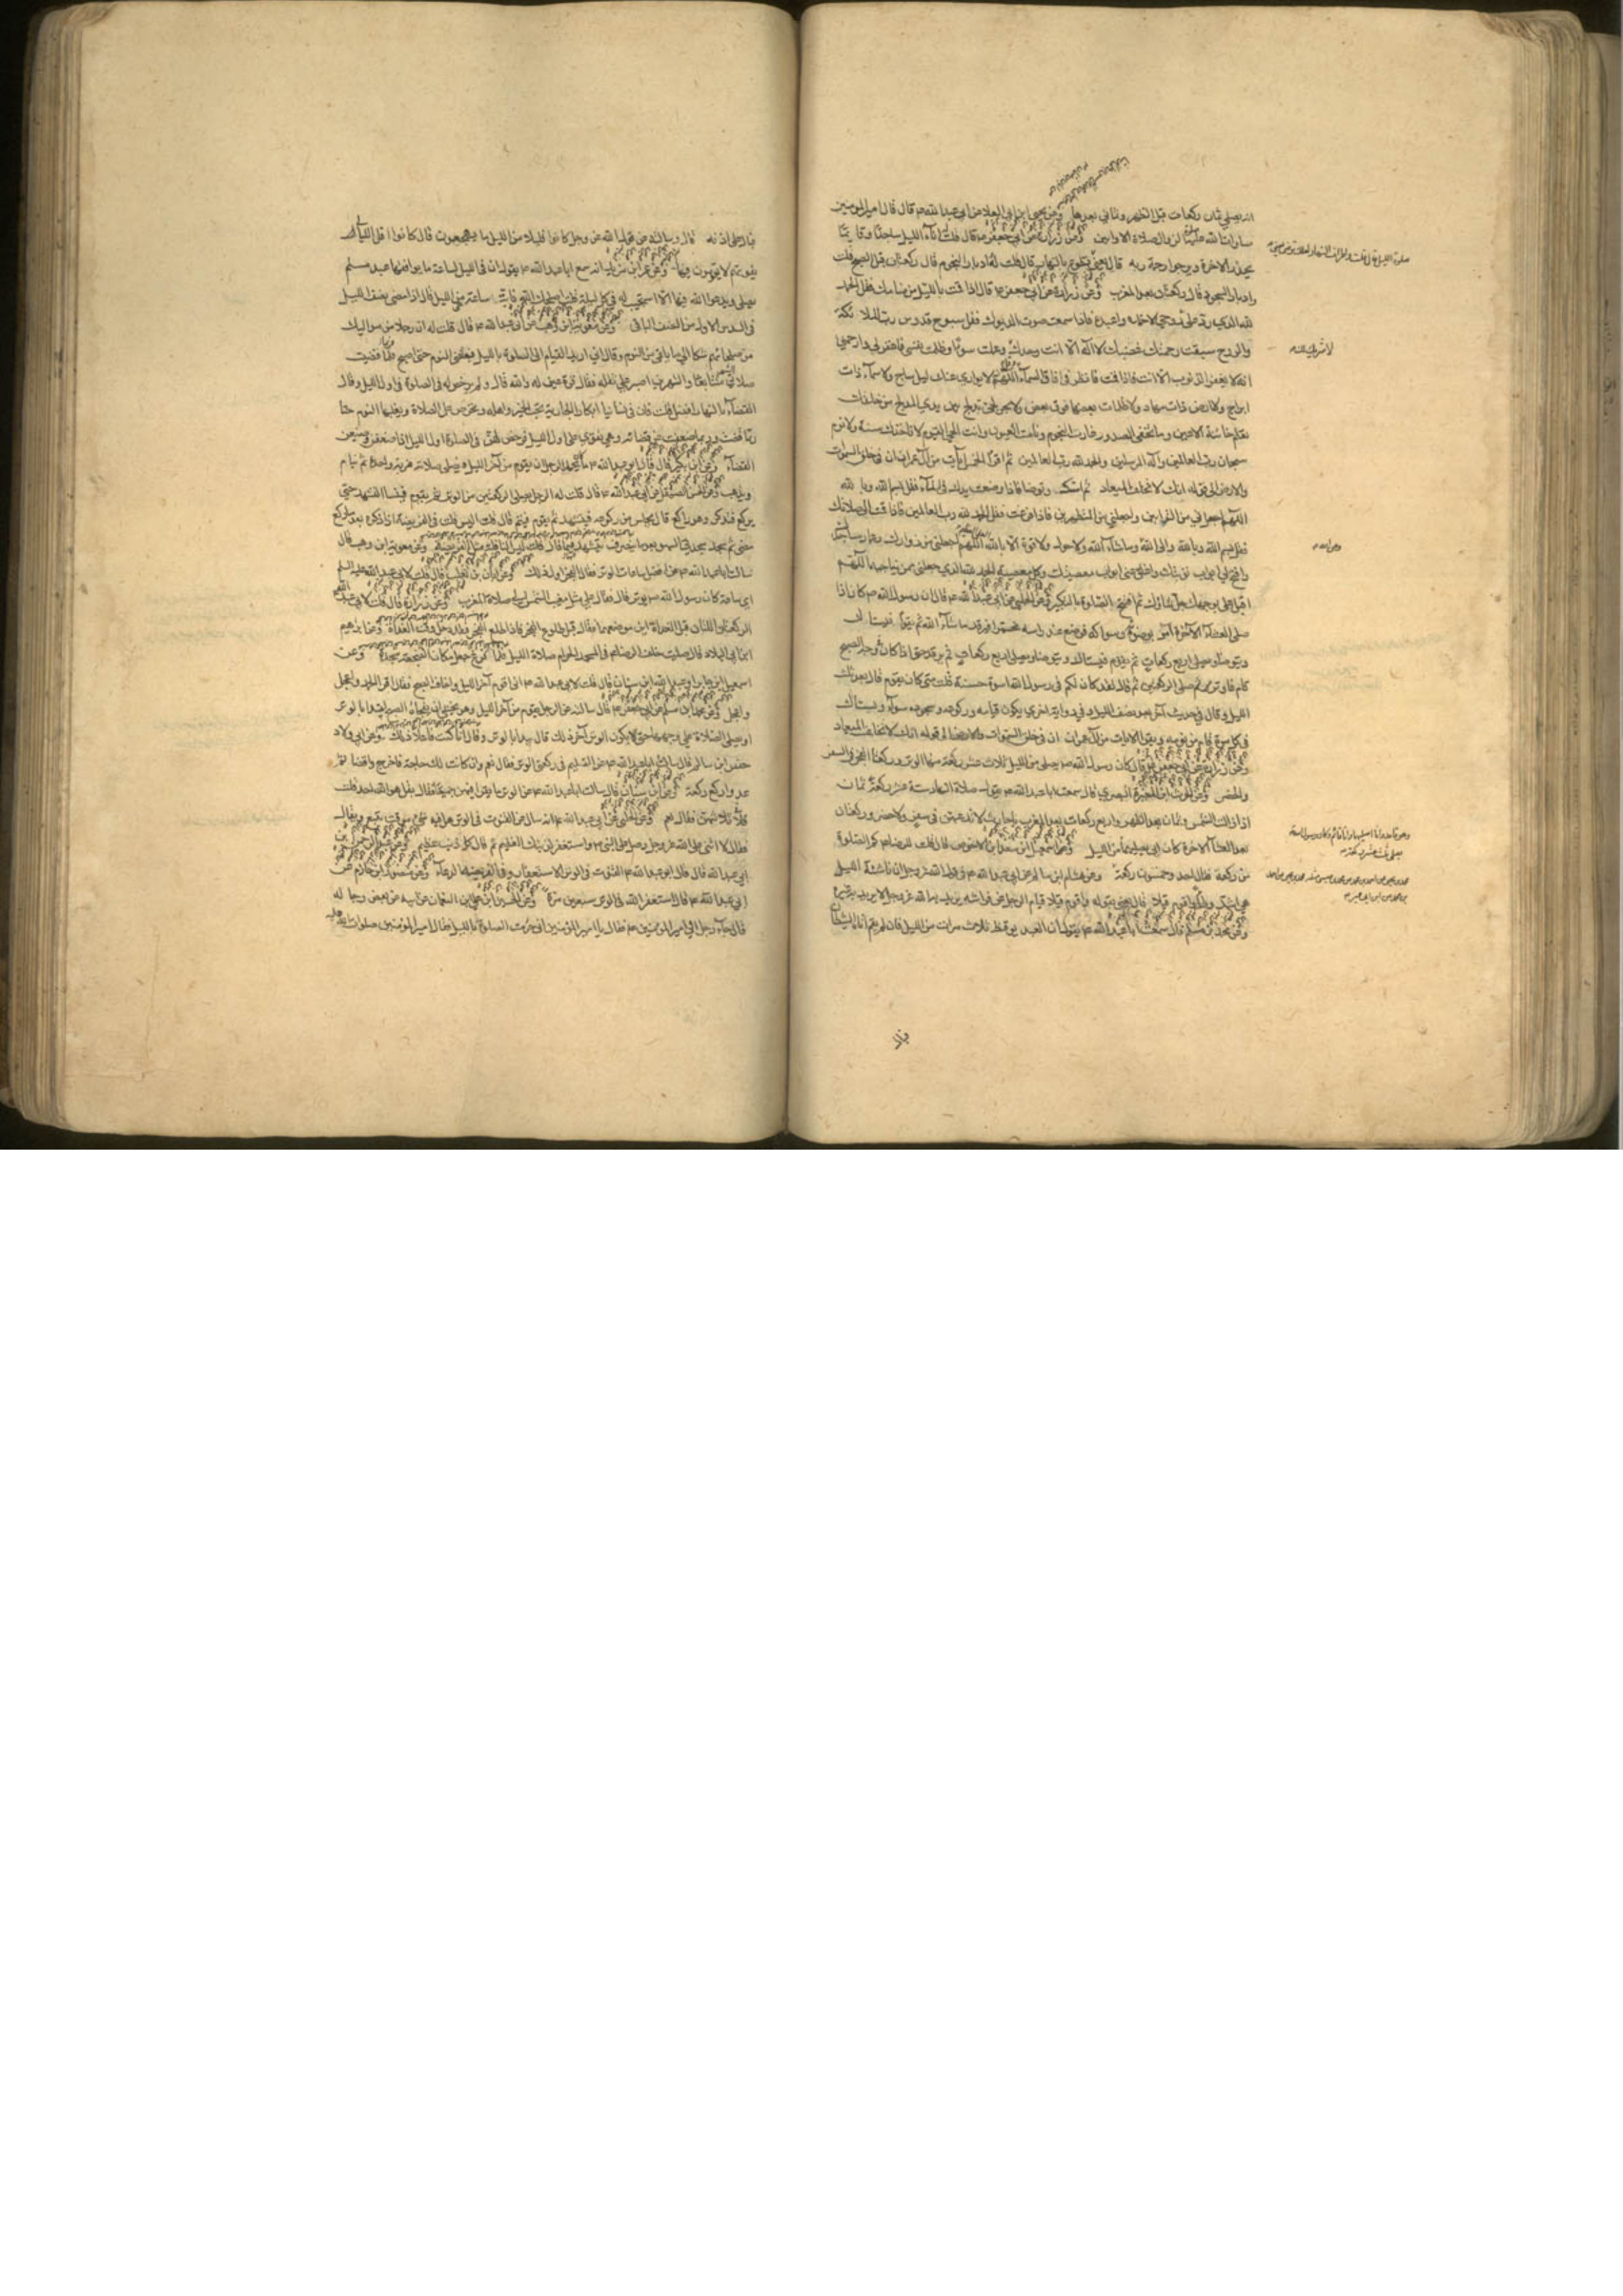 انه يصلي ثمان ركعات قبل الظهر وثماني بعدها وعن يحيى ابن ابي العلا عن ابي عبد الله ع قال قال امير المؤمنين
صلوات الله عليه صلاة الزوال صلاة الاوابين وعن زرارة عن ابي جعفر ع قال قلت اناء الليل ساجدا وقائما
يحذر الاخرة ويرجو رحمة ربه قال يعني قال قلت له وادبار النجوم قال ركعتان قبل الصبح قلت
وادبار السجود قال ركعتان بعد المغرب وعن زرارة عن ابي جعفر ع قال اذا قمت بالليل من منامك فقل الحمد
لله الذي رد علي روحي لاحمده واعبده فاذا سمعت صوت الديوك فقل سبوح قدوس رب الملائكة
والروح سبقت رحمتك غضبك لا اله الا انت وحدك عملت سوءا وظلمت نفسي فاغفر لي وارحمني
انه لا يغفر الذنوب الا انت فاذا قمت فانظر في افاق السماء وقل اللهم لا يواري عنك ليل ساج ولا سماء ذات
ابراج ولا ارض ذات مهاد ولا ظلمات بعضها فوق بعض ولا بحر لجي تدلج بين يدي المدلج من خلقك
تعلم خائنة الاعين وما تخفي الصدور غارت النجوم ونامت العيون وانت الحي القيوم لا تاخذك سنة ولا نوم
سبحان رب العالمين واله المرسلين والحمد لله رب العالمين ثم اقرأ الخمس ايات من ال عمران ان في خلق السموات
والارض الى قوله انك لا تخلف الميعاد ثم استك وتوضا فاذا وضعت يدك في الماء فقل بسم الله وبالله
اللهم اجعلني من التوابين واجعلني من المتطهرين فاذا فرغت فقل الحمد لله رب العالمين فاذا قمت الى صلاتك
فقل بسم الله وبالله والى الله وما شاء الله ولا حول ولا قوة الا بالله اللهم اجعلني من زوارك وعمار مساجدك
وافتح لي باب توبتك واغلق عني ابواب معصيتك وكل معصية الحمد لله الذي جعلني ممن يناجيه اللهم
اقبل علي بوجهك جل ثناؤك ثم افتتح الصلوة بالتكبير وعن الحلبي عن ابي عبد الله ع قال ان رسول الله ص كان اذا
صلى العشاء الاخرة امر بوضوئه وسواكه فوضع عند راسه مخمرا فيرقد ما شاء الله ثم يقوم فيستاك
ويتوضا ويصلي اربع ركعات ثم يقوم فيستاك ويتوضا ويصلي اربع ركعات ثم يرقد حتى اذا كان في وجه الصبح
قام فاوتر ثم صلى الركعتين ثم قال لقد كان لكم في رسول الله اسوة حسنة قلت متى كان يقوم قال بعد ثلث
الليل وقال في حديث اخر بعد نصف الليل وفي رواية اخرى يكون قيامه وركوعه وسجوده سواء ويستاك
في كل مرة قام من نومه ويقرا الايات من ال عمران ان في خلق السموات والارض الى قوله انك لا تخلف الميعاد
وعن زرارة عن ابي جعفر ع قال كان رسول الله ص يصلي من الليل ثلاث عشر ركعة منها الوتر وركعتا الفجر في السفر
والحضر وعن الحرث ابن المغيرة البصري قال سمعت ابا عبد الله ع يقول صلاة النهار ستة عشر ركعة ثمان
اذا زالت الشمس وثمان بعد الظهر واربع ركعات بعد المغرب يا حارث لا تدعهن في سفر ولا حضر وركعتان
بعد العشاء الاخرة كان ابي يصليهما من الليل وعن اسمعيل ابن سعد ابن الاحوص قال قلت للرضا ع كم الصلوة
من ركعة فقال احد وخمسون ركعة وعن هشام ابن سالم عن ابي عبد الله ع في قول الله عز وجل ان ناشئة الليل
هي اشد وطا واقوم قيلا قال يعني بقوله واقوم قيلا قيام الرجل عن فراشه يريد به الله عز وجل لا يريد به غيره
وعن محمد بن مسلم قال سمعت ابا عبد الله ع يقول ان العبد يوقظ ثلاث مرات من الليل فان لم يقم اتاه الشيطان
لا شريك لك
فبال
فبال في اذنه قال وسالته عن قول الله عز وجل كانوا قليلا من الليل ما يهجعون قال كانوا اقل الليالي
يفوتهم لا يقومون فيها وعن عمر ابن يزيد انه سمع ابا عبد الله ع يقول ان في الليل لساعة ما يوافقها عبد مسلم
يصلي ويدعو الله فيها الا استجيب له في كل ليلة قلت اصلحك الله فاي ساعة هي من الليل قال اذا مضى نصف الليل
في السدس الاول من النصف الباقي وعن معوية ابن وهب عن ابي عبد الله ع قال قلت له ان رجلا من مواليك
من صلحائهم شكا الي ما يلقى من النوم وقال اني اريد القيام الى الصلوة بالليل فيغلبني النوم حتى اصبح فربما قضيت
صلاتي الشهر متتابعا والشهرين اصبر على ثقله فقال قرة عين له والله قال ولم يرخص له في الصلوة في اول الليل وقال
القضاء بالنهار افضل قلت فان من نسائنا ابكارا الجارية تحب الخير واهله وتحرص على الصلاة ويغلبها النوم حتى
ربما قضت وربما ضعفت عن قضائه وهي تقوى عليه اول الليل فرخص لهن في الصلوة اول الليل اذا ضعفن وضيعن
القضاء وعن ابن بكير قال قال ابو عبد الله ع ما كان يحمد الرجل ان يقوم من اخر الليل فيصلي صلاته ضربة واحدة ثم ينام
ويذهب وعن الحسن الصيقل عن ابي عبد الله ع قال قلت له الرجل يصلي الركعتين من الوتر ثم يقوم فينسى التشهد حتى
يركع فيذكر وهو راكع قال يجلس من ركوعه فيتشهد ثم يقوم فيتم قال قلت اليس قلت في الفريضة اذا ذكره بعد ما ركع
مضى ثم سجد سجدتي السهو بعد ما ينصرف يتشهد فيهما قال ليس النافلة مثل الفريضة وعن معوية ابن وهب قال
سالت ابا عبد الله ع عن افضل ساعات الوتر فقال الفجر اول ذلك وعن ابان بن تغلب قال قلت لابي عبد الله عليه السلم
اي ساعة كان رسول الله ص يوتر قال فقال على مثل مغيب الشمس الى صلاة المغرب وعن زرارة قال قلت لابي جعفر
الركعتان اللتان قبل الغداة اين موضعهما فقال قبل طلوع الفجر فاذا طلع الفجر فقد دخل وقت الغداة وعن ابرهيم
ابن ابي البلاد قال صليت خلف الرضا ع في المسجد الحرام صلاة الليل فلما فرغ جعل مكان الضجعة سجدة وعن
اسمعيل ابن جابر او عبد الله ابن سنان قال قلت لابي عبد الله ع اني اقوم اخر الليل واخاف الصبح فقال اقرا الحمد واعجل
واعجل وعن محمد بن مسلم عن ابي جعفر ع قال سالته عن الرجل يقوم من اخر الليل وهو يخشى ان يفجاه الصبح ايبدا بالوتر
او يصلي الصلاة على وجهها حتى يكون الوتر اخر ذلك قال يبدا بالوتر وقال انا كنت فاعلا ذلك وعن ابي ولاد
حفص ابن سالم قال سالت ابا عبد الله ع عن التسليم في ركعتي الوتر فقال نعم وان كانت لك حاجة فاخرج واقضها ثم
عد واركع ركعة وعن ابن سنان قال سالت ابا عبد الله ع عن الوتر ما يقرا فيهن جميعا فقال بقل هو الله احد قلت
في ثلاثهن قال نعم وعن الحلبي عن ابي عبد الله ع انه سال عن القنوت في الوتر هل فيه شيء موقت يتبع ويقال
فقال لا اثن على الله عز وجل وصل على النبي ص واستغفر لذنبك العظيم ثم قال كل ذنب عظيم وعن عبد الرحمن بن
ابي عبد الله قال قال ابو عبد الله ع القنوت في الوتر الاستغفار وفي الفريضة الدعاء وعن منصور ابن حازم عن
ابي عبد الله ع قال استغفر الله في الوتر سبعين مرة وعن الحسين ابن علي بن النعمان عن ابيه عن بعض رجاله
قال جاء رجل الى امير المؤمنين ع فقال يا امير المؤمنين اني حرمت الصلوة بالليل فقال امير المؤمنين صلوات الله عليه